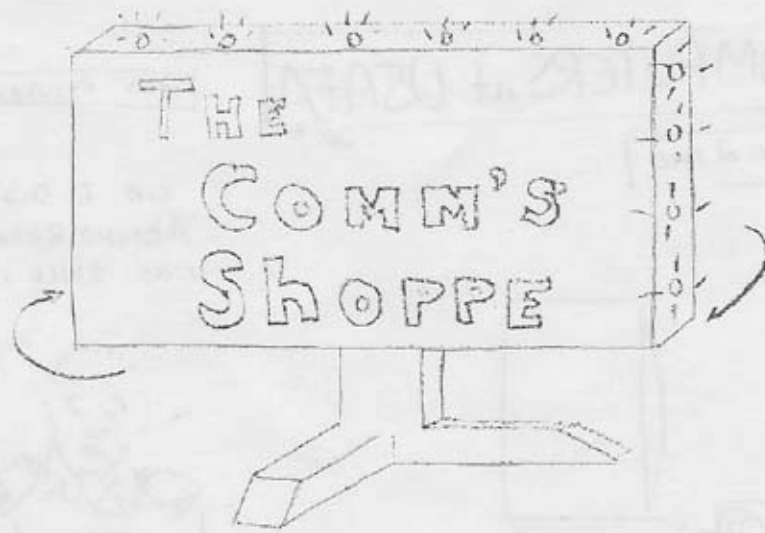 THE
COMM'S
ShOPPE